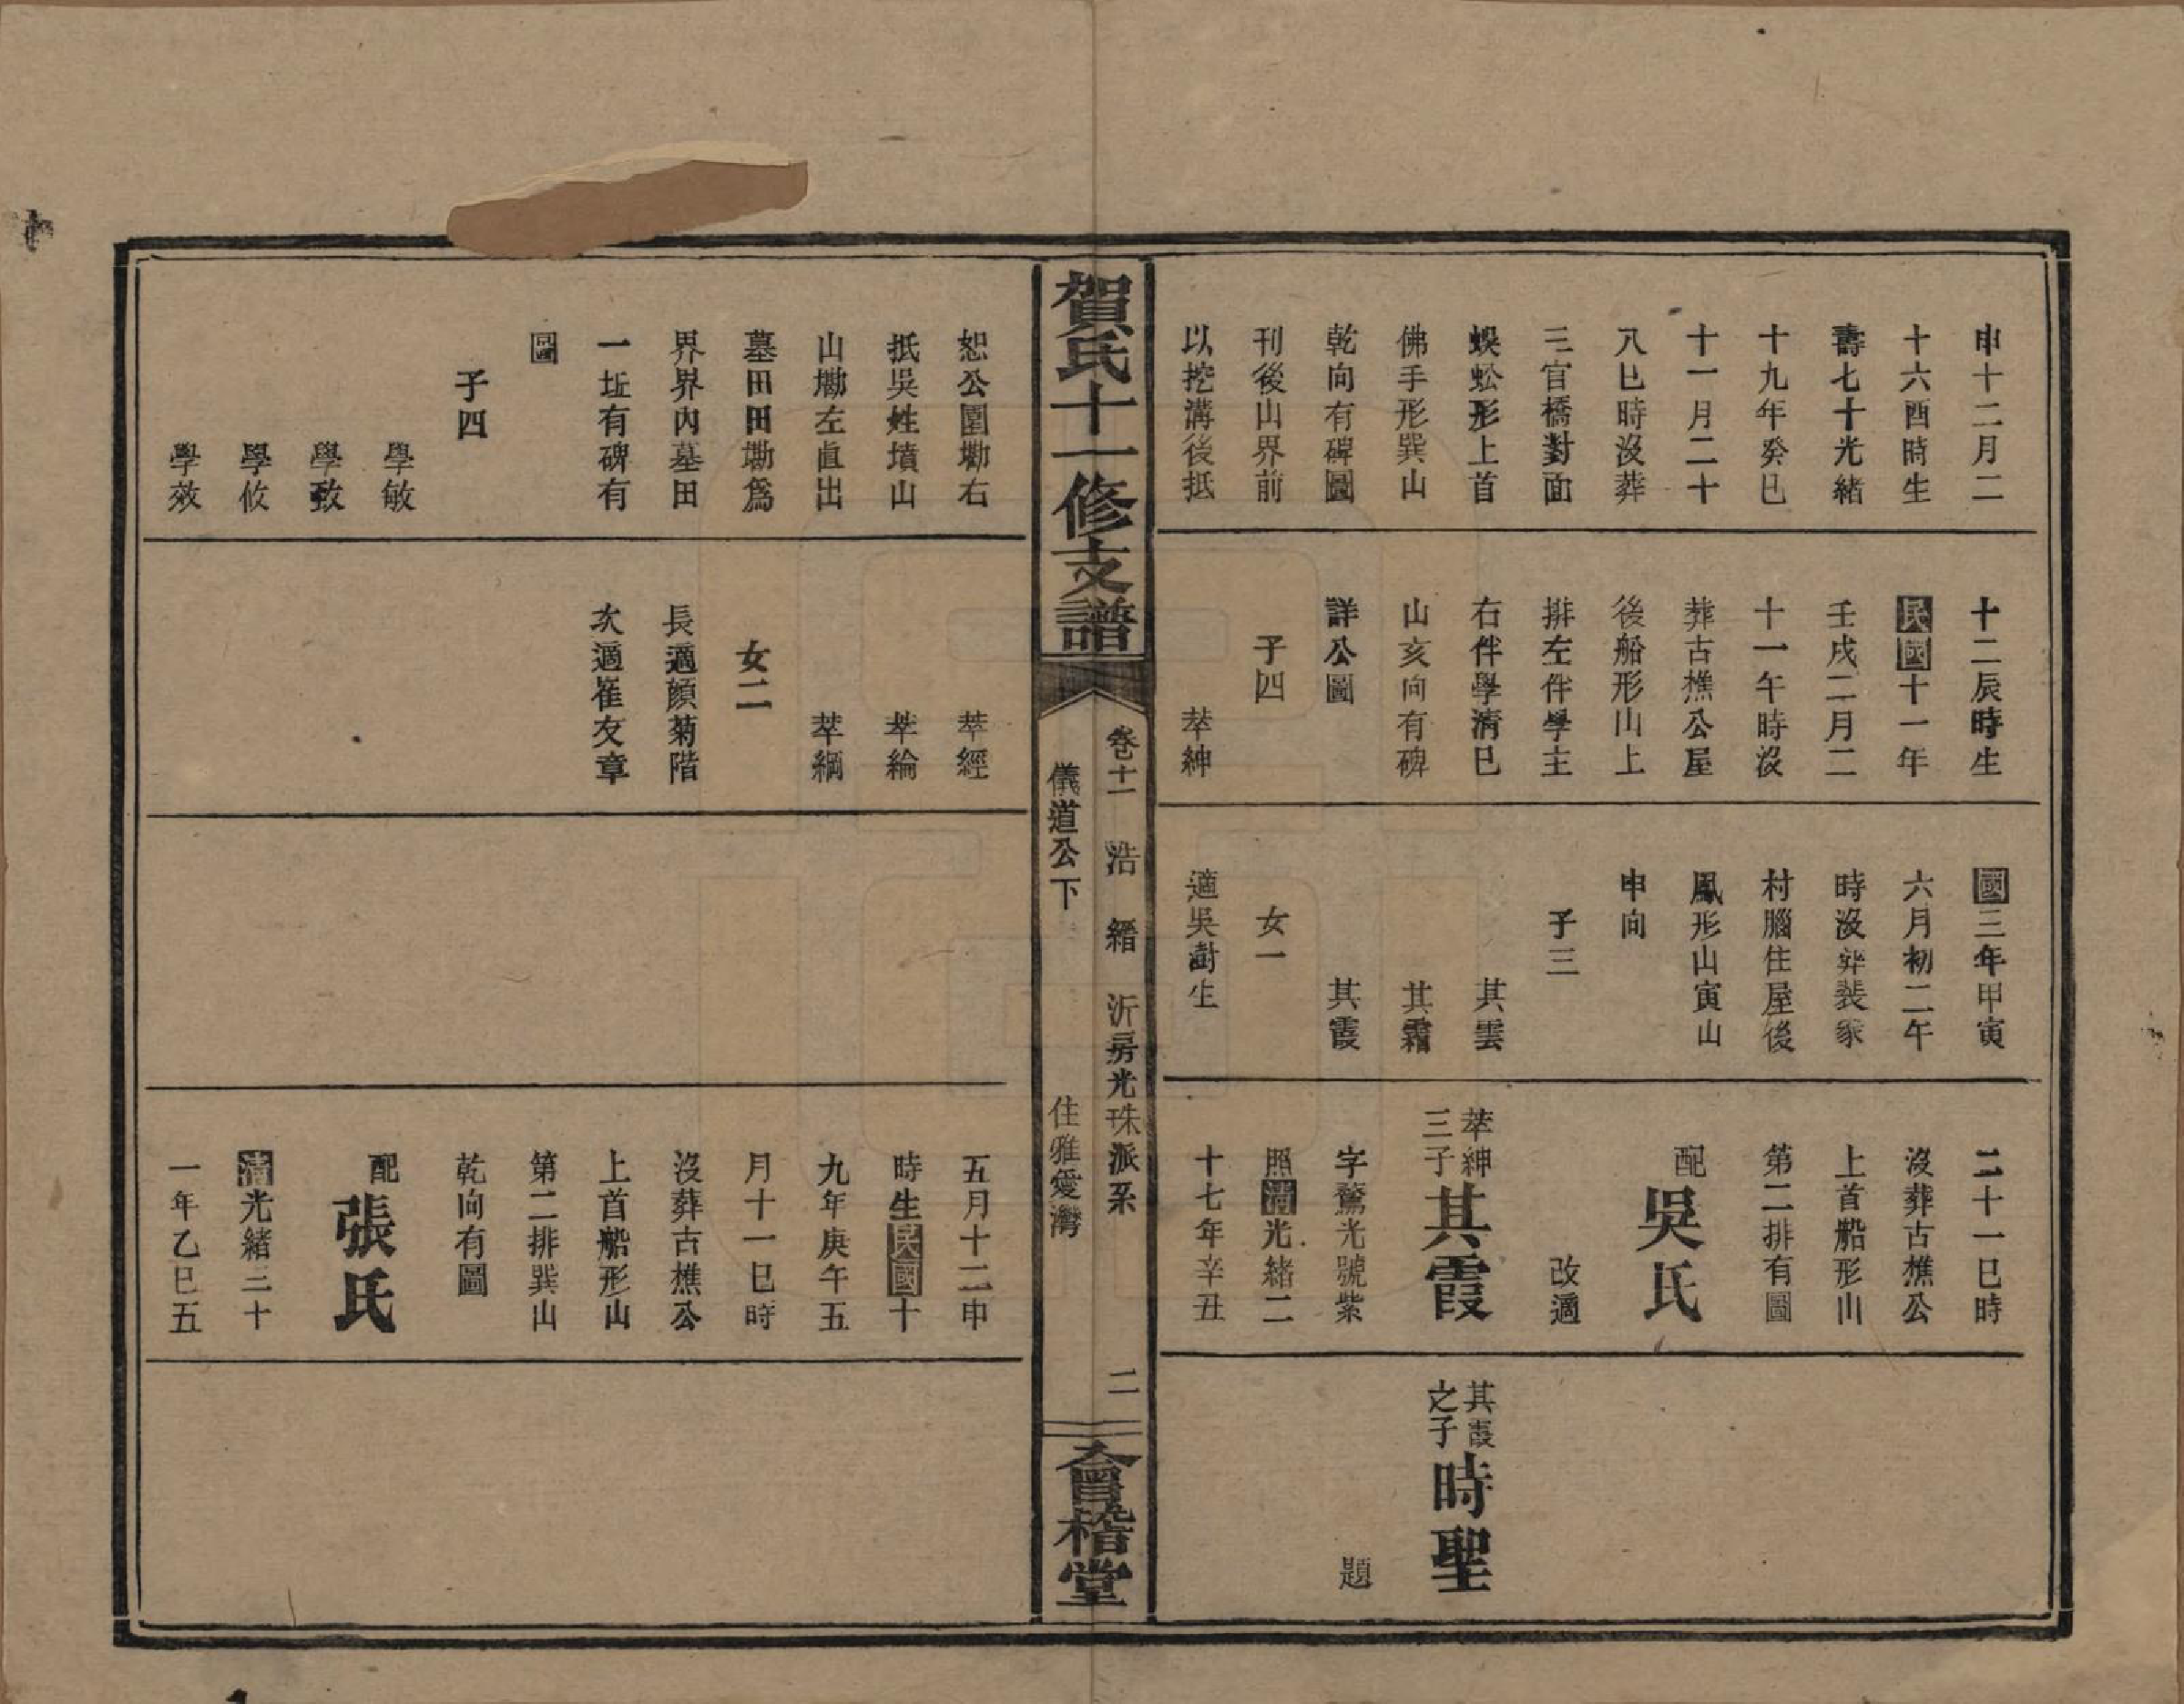 申十二月二
十六酉時生
壽七十光緒
十九年癸巳
十一月二十
八巳時沒葬
三官橋對面
蜈蚣形上首
佛手形巽山
乾向有碑圖
刊後山界前
以挖溝後抵
十二辰時生
民國十一年
壬戌二月二
十一午時沒
葬古樵公屋
後船形山上
排左伴學主
右伴學清巳
山亥向有碑
詳公圖
子四
萃紳
國三年甲寅
六月初二午
時沒葬裴家
村腦住屋後
鳳形山寅山
申向
子三
其雲
其霜
其霞
女一
適吳澍生
二十一巳時
沒葬古樵公
上首船形山
第二排有圖
配吳氏
改適
萃紳三子其霞
字驚光號紫
照清光緒二
十七年辛丑
其霞之子時聖
題
賀氏十一修支譜
卷十一 浩 縉 沂房光珠派系 二
儀道公下 住雅愛灣
會楷堂
恕公園墈右
抵吳姓墳山
山墈左直出
墓田田墈爲
界界內墓田
一坵有碑有
圖
子四
學敏
學致
學攸
學效
萃經
萃綸
萃綱
女二
長適顔菊階
次適崔友章
五月十二申
時生民國十
九年庚午五
月十一巳時
沒葬古樵公
上首船形山
第二排巽山
乾向有圖
配張氏
清光緒三十
一年乙巳五